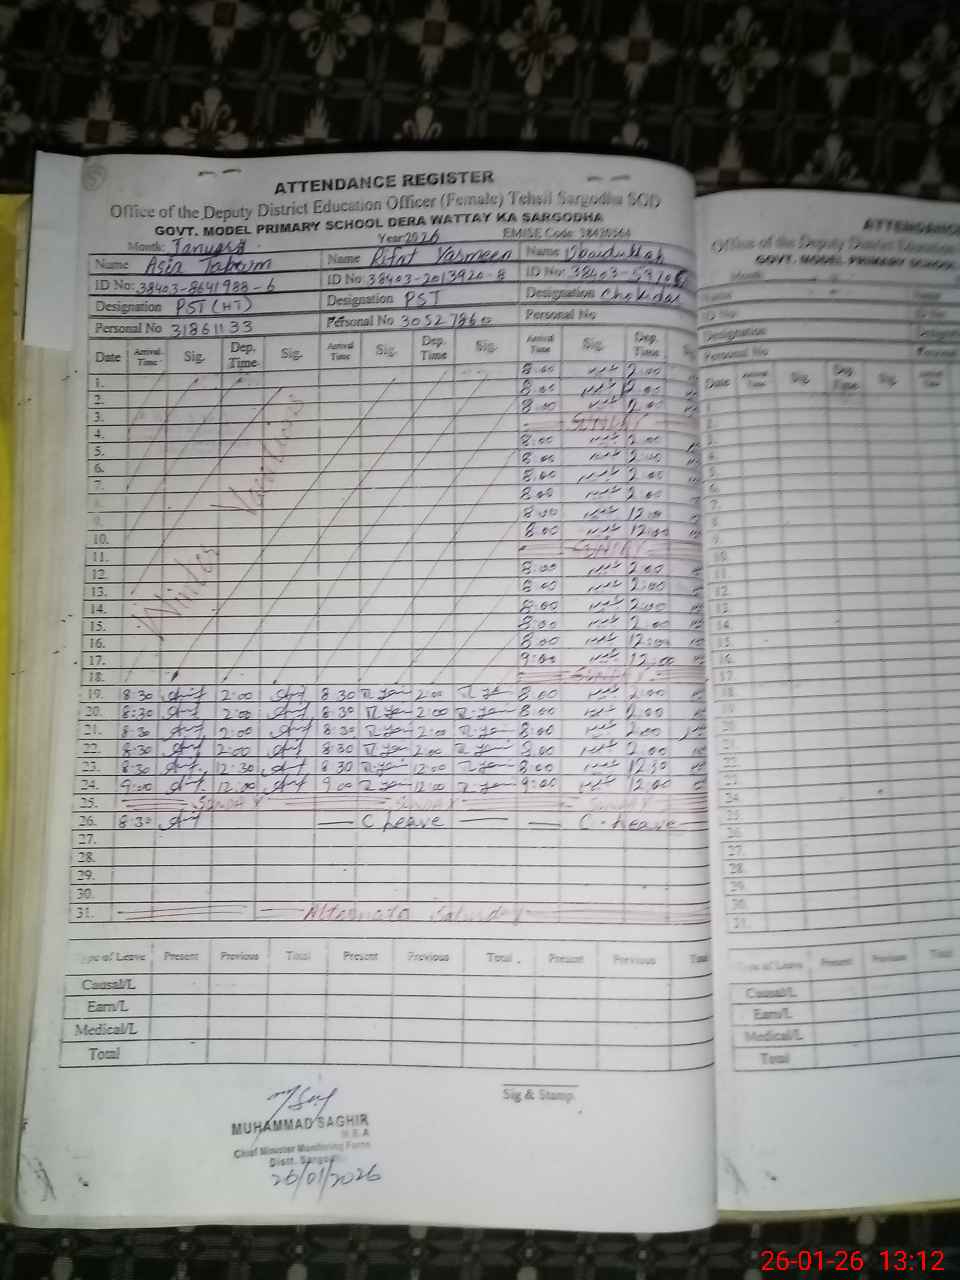 ATTENDANCE REGISTER
Office of the Deputy District Education Officer (Female) Tehsil Sargodha SGD
GOVT. MODEL PRIMARY SCHOOL DERA WATTAY KA SARGODHA
Month: January Year 2026 EMISE Code: 38420364
Name Asia Tabsum Name Rifat Yasmeen Name Ubaidullah
ID No: 38403-8641988-6 ID No: 38403-2013920-8 ID No: 38403-
Designation PST (HT) Designation PST Designation Chokidar
Personal No 31861133 Personal No 30527860 Personal No
Date Arrival Time Sig. Dep. Time Sig. Arrival Time Sig. Dep. Time Sig. Arrival Time Sig. Dep. Time
1. 8:00 2:00
2. 8:00 2:00
3. 8:00 2:00
4. SUNDAY
5. 8:00 2:00
6. 8:00 2:00
7. 8:00 2:00
8. 8:00 2:00
9. 8:00 12:00
10. 8:00 12:00
11. SUNDAY
12. 8:00 2:00
13. 8:00 2:00
14. 8:00 2:00
15. 8:00 2:00
16. 8:00 12:00
17. 9:00 12:00
18. SUNDAY
Winter Vacations
19. 8:30 2:00 8:30 2:00 8:00 2:00
20. 8:30 2:00 8:30 2:00 8:00 2:00
21. 8:30 2:00 8:30 2:00 8:00 2:00
22. 8:30 2:00 8:30 2:00 8:00 2:00
23. 8:30 12:30 8:30 12:00 8:00 12:30
24. 9:00 12:00 9:00 12:00 9:00 12:00
25. SUNDAY SUNDAY SUNDAY
26. 8:30 C leave C. leave
27.
28.
29.
30.
31. Alternate Saturday
Type of Leave Present Previous Total Present Previous Total Present Previous
Causal/L
Earn/L
Medical/L
Total
Sig & Stamp.
MUHAMMAD SAGHIR
M.E.A
Chief Minister Monitoring Force
Distt. Sargodha
26/01/2026
ATTENDANCE
Office of the Deputy District Education
GOVT. MODEL PRIMARY SCHOOL
Month
Name
ID No
Designation
Personal No
Date Arrival Time Sig. Dep. Time Sig. Arrival Time
Type of Leave Present Previous Total
Causal/L
Earn/L
Medical/L
Total
26-01-26 13:12